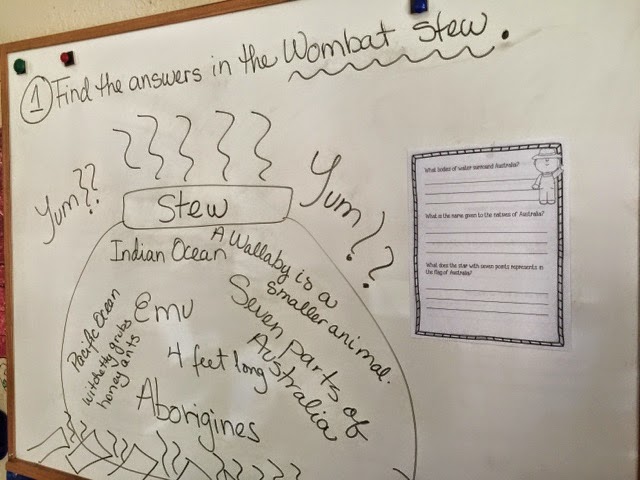 1 Find the answers in the Wombat Stew.
Yum??
Yum??
Stew
Indian Ocean
A Wallaby is a
smaller animal.
Emu
Seven parts of
Australia
Pacific Ocean
witchetty grubs
honey ants
4 feet long
Aborigines
What bodies of water surround Australia?
What is the name given to the natives of Australia?
What does the star with seven points represents in
the flag of Australia?